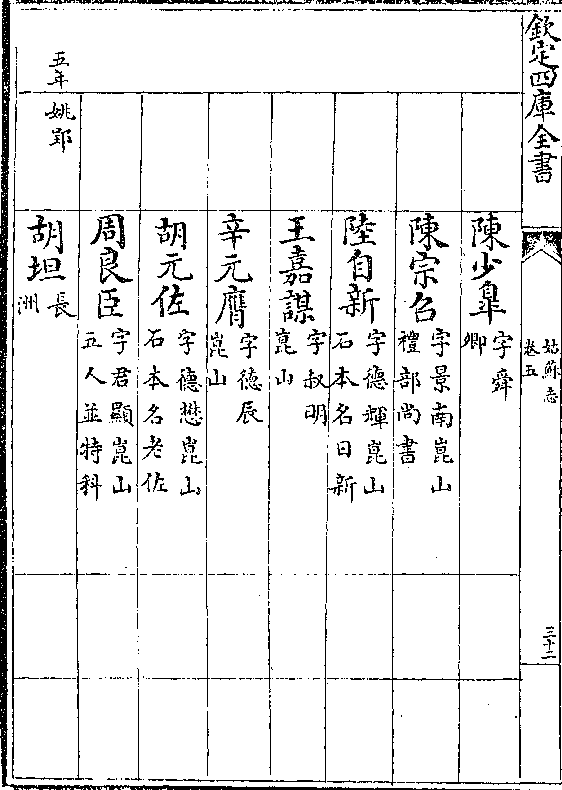 欽定四庫全書
姑蘇志
卷五
三十二
陳少皐字舜
卿
陳宗召字景南崑山
禮部尚書
陸自新字德輝崑山
石本名日新
王嘉謀字叔明
崑山
辛元膺字德辰
崑山
胡元佐字德懋崑山
石本名老佐
周良臣字君顯崑山
五人並特科
五年
姚郢
胡坦長
洲